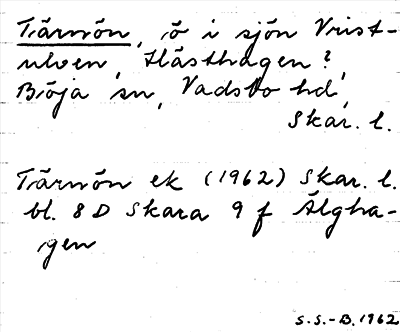 Tärnön, ö i sjön Vrist-
ulven, Hästhagen?,
Böja sn, Vadsbo hd,
Skar. l.
Tärnön ek (1962) Skar. l.
bl. 8 D Skara 9 f Älgha-
gen
S.S.-B. 1962